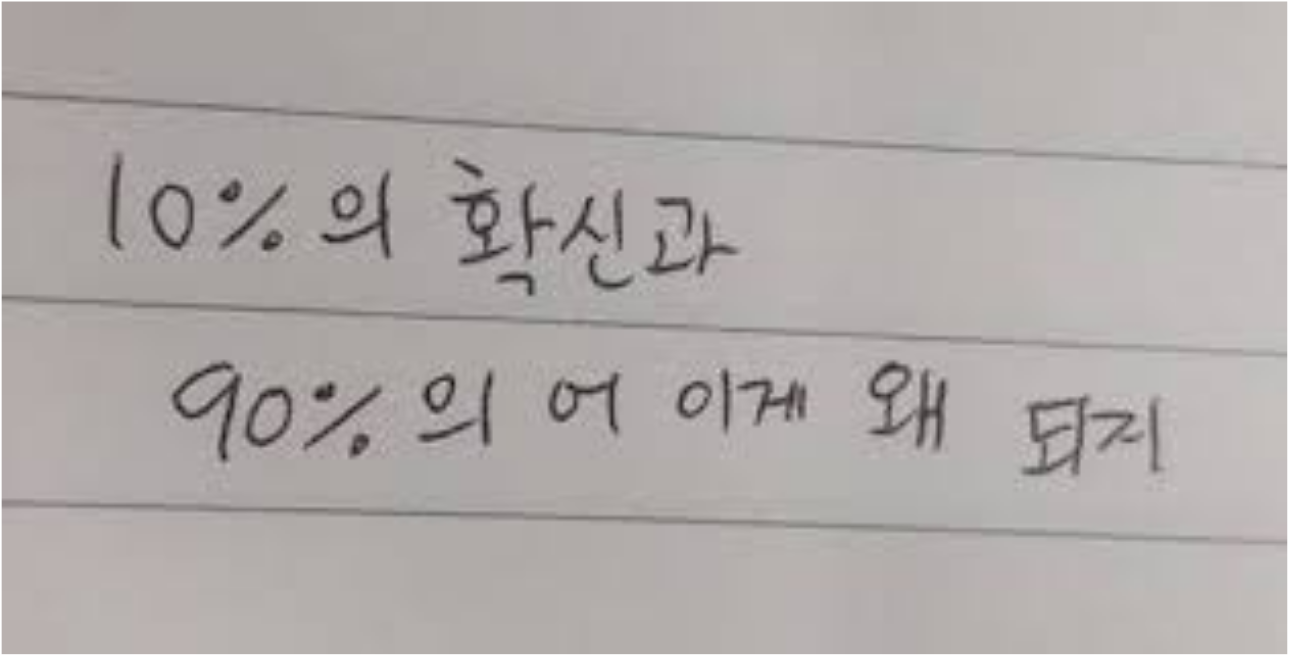 10%의 확신과
90%의 어 이게 왜 되지